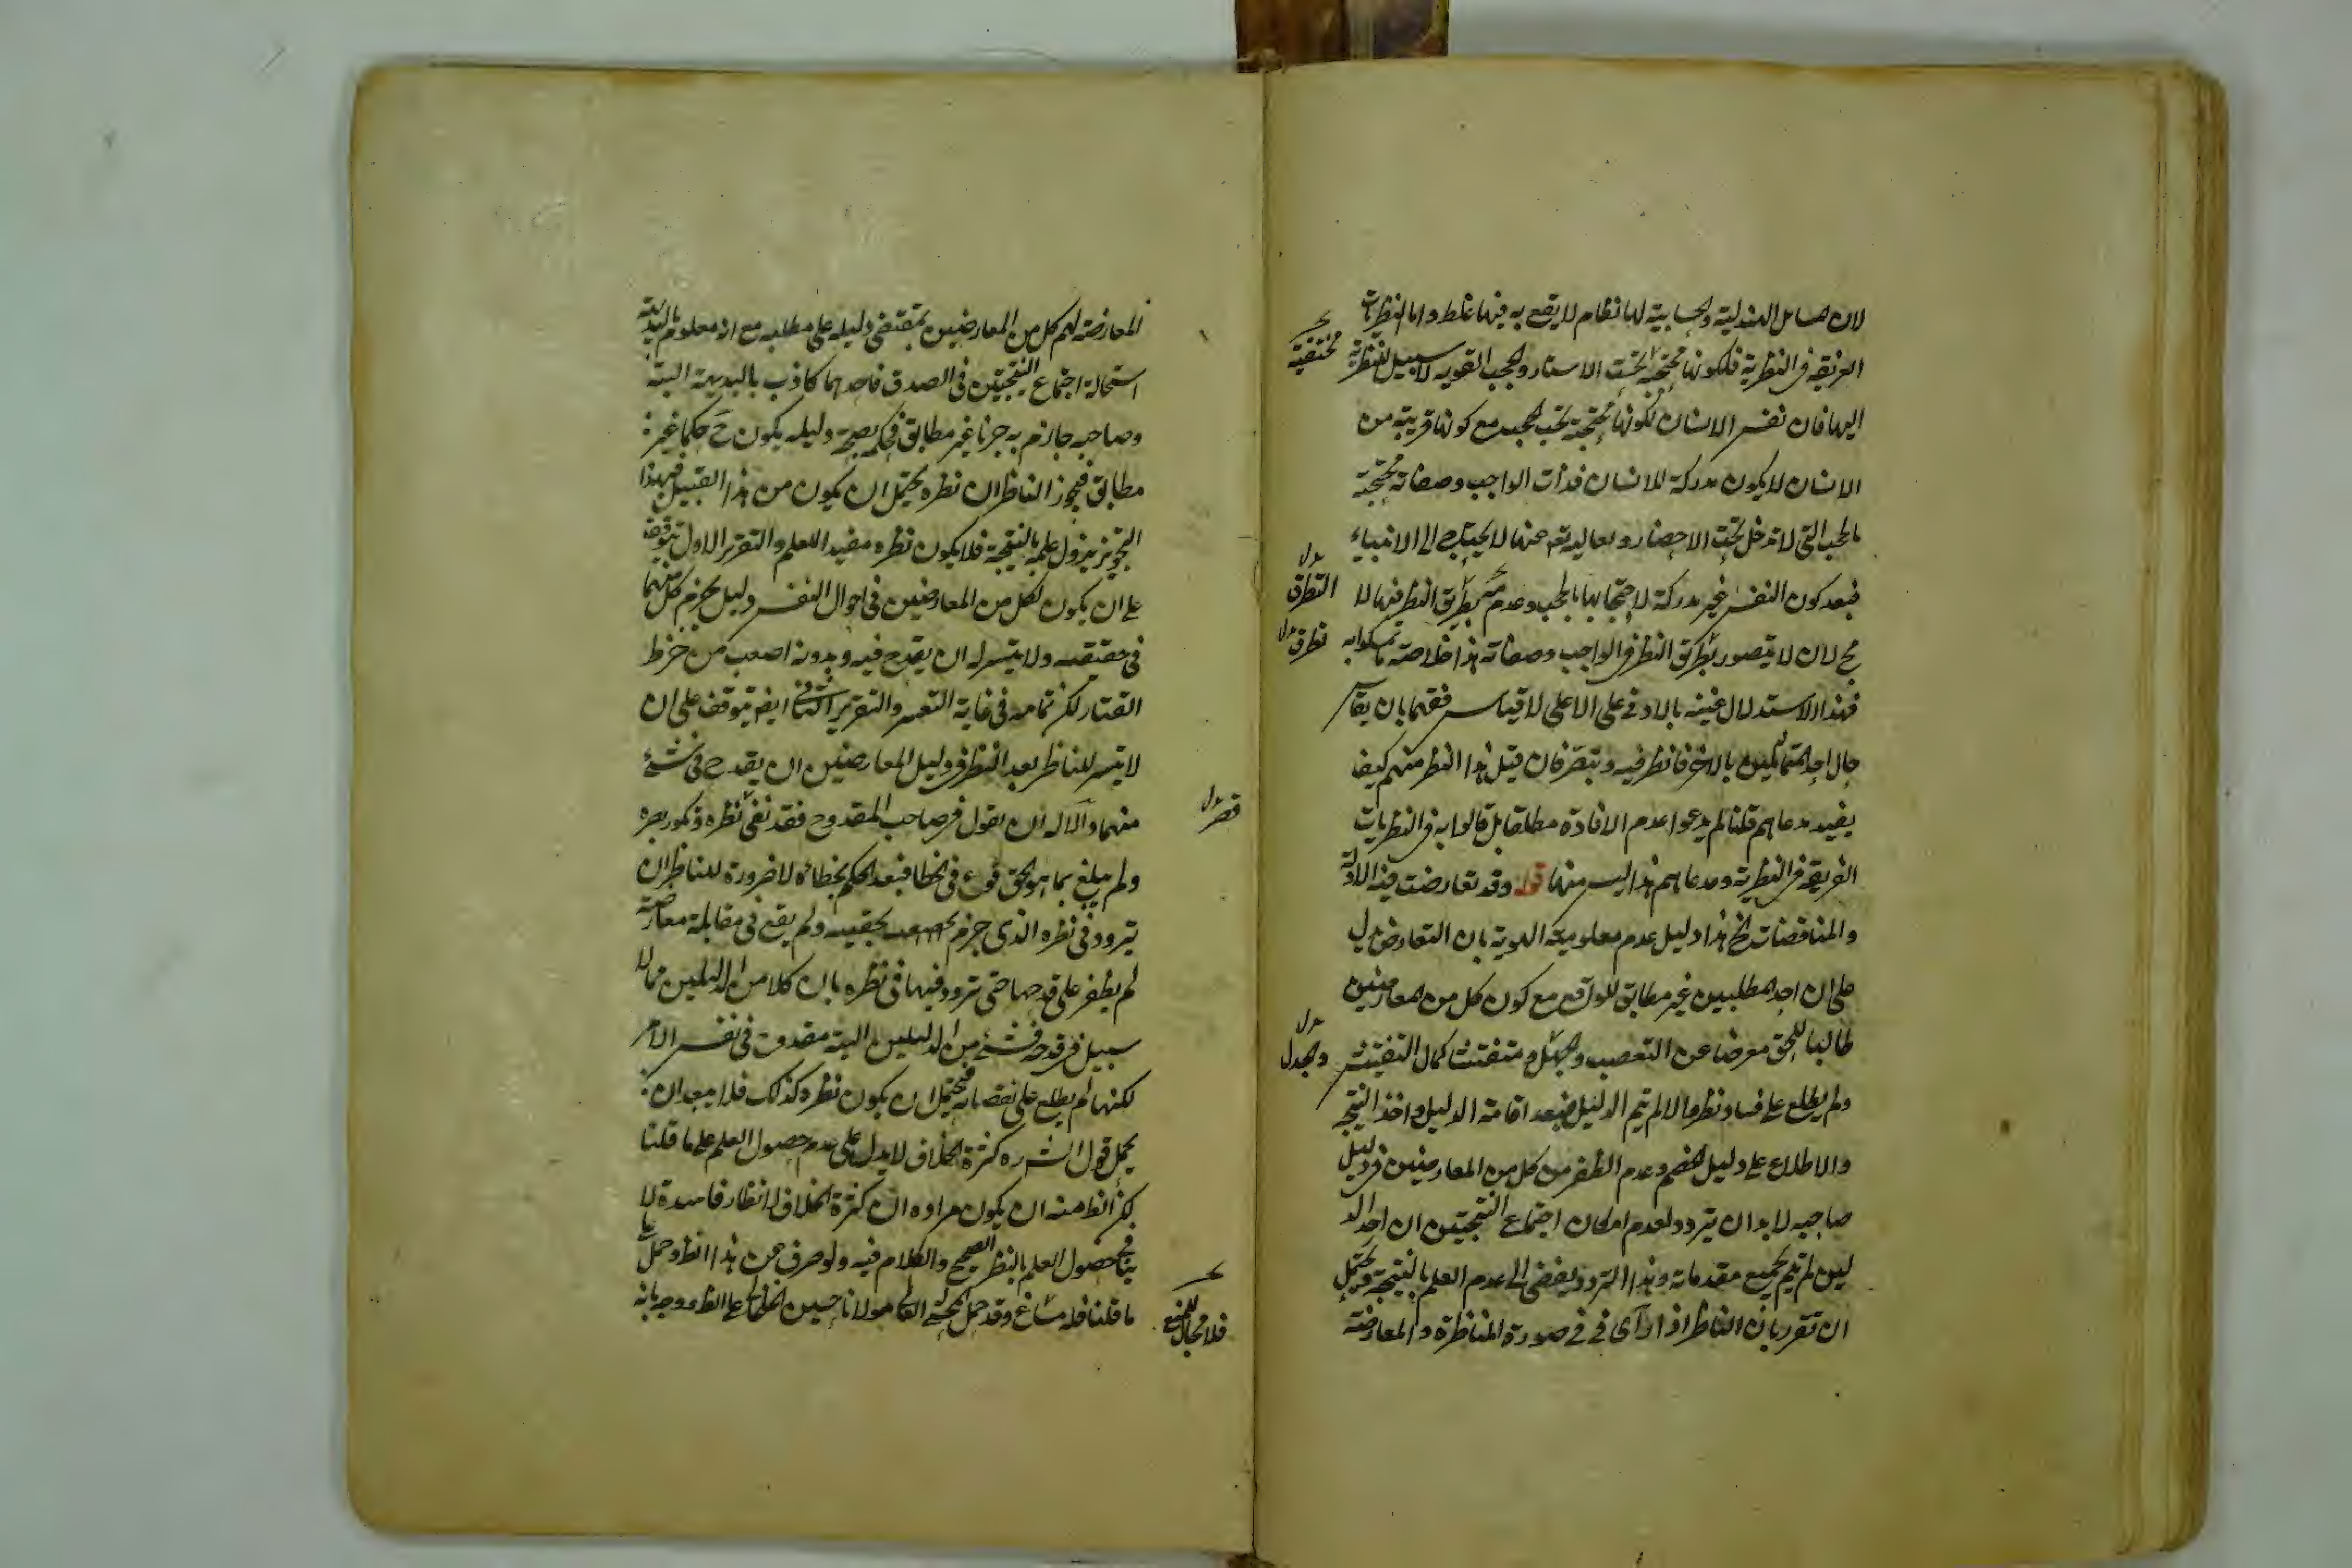 لان المسائل الهندسية والحسابية لها نظام لا يقع به فيها غلط واما النظريات
الغريقة فى النظرية فلكونها محتجبة تحت الاستار والحجب القوية لا سبيل للنظرية
مختفية
اليها فان نفس الانسان لكونها محتجبة تحت الحجب مع كونها قريبة من
الانسان لا يكون مدركة للانسان فذات الواجب وصفاته محتجبة
بالحجب التى لا تدخل تحت الاحصار
فبعد كون النفس غير مدركة لاحتجابها بالحجب وعدم بطريق النظر فيها لا
التطرق
مح لان لا يتصور بطريق النظر فى الواجب وصفاته هذا خلاصة ما تمسكوا به
تطرق
فهذا الاستدلال عينه بالادنى على الاعلى لا قياس فقها بان يقاس
حال احد المتماثلين بالاخر فانظر فيه وتبصر فان قيل هذا النظر منهم كيف
يفيد مدعاهم قلنا لم يدعوا عدم الافادة مطلقا بل قالوا به فى النظريات
الغريقة فى النظرية ومدعاهم هذا ليس منها قوله وقد تعارضت فيه الادلة
والمناقضات الخ هذا دليل عدم معلومية الهوية بان التعارض يدل
على ان احد المطلبين غير مطابق للواقع مع كون كل من المعارضين
طالبا للحق معرضا عن التعصب والجهل و متفتشا كمال التفتيش
والجدل
ولم يطلع على فساد نظره والا لم يتم الدليل فبعد اقامة الدليل واخذ النتيجة
والاطلاع على دليل الخصم وعدم الظفر من كل من المعارضين فى دليل
صاحبه لا بد ان يتردد لعدم امكان اجتماع النتيجتين ان احد الد
ليلين لم يتم بجميع مقدماته وهذا التردد يفضى الى عدم العلم بالنتيجة ويحتمل
ان تقرر بان الناظر اذا رأى فى فى صورة المناظرة والمعارضة
المعارضة لهم كل من المعارضين بمقتضى دليله على مطلبه مع انه معلوم بالبديهة
استحالة اجتماع النتيجتين فى الصدق فاحدهما كاذب بالبديهة البتة
وصاحبه جازم به جزما غير مطابق فحكمه بصحة دليله يكون ح حكما غير
مطابق فيجوز الناظر ان نظره يحتمل ان يكون من هذا القبيل فبهذا
التجويز يزول علمه بالنتيجة فلا يكون نظره مفيدا للعلم والتقرير الاول يتوقف
على ان يكون لكل من المعارضين فى احوال النفس دليل يجزم كل منهما
فى حقيقته ولا يتيسر له ان يقدح فيه وبدونه اصعب من خرط
القتاد لكن تمامه فى غاية التعسر والتقرير الثانى ايضا يتوقف على ان
لا يتيسر للناظر بعد النظر فى دليل المعارضين ان يقدح فى شئ
منهما والا له ان يقول صاحب المقدوح فقد نفى نظره
قصر
ولم يبلغ بما هو الحق فوقع فى الخطا فبعد الحكم بخطائه لا ضرورة للناظر ان
يتردد فى نظره الذى جزم بحقيته ولم يقع فى مقابلة معارضة
لم يظفر على قدحها حتى تردد فيها فى نظره بان كلا من الدليلين مما لا
سبيل فى قدحه فشئ من الدليلين البتة مقدوح فى نفس الامر
لكنها لم يطلع على نقصانه فيحتمل ان يكون نظره كذلك فلا يبعد ان
يحمل قول الش ره كثرة الخلاف لا يدل على عدم حصول العلم على ما قلنا
لكن الظ منه ان يكون مراده ان كثرة الخلاف لانظار فاسدة لا
ينافى حصول العلم بالنظر الصحيح والكلام فيه ولو صرف عن هذا الظ وحمل على
ما قلنا فله مساغ وقد حمل مولانا حسين الخلخالى على الظ ووجه بانه
فلا مجال للمنع